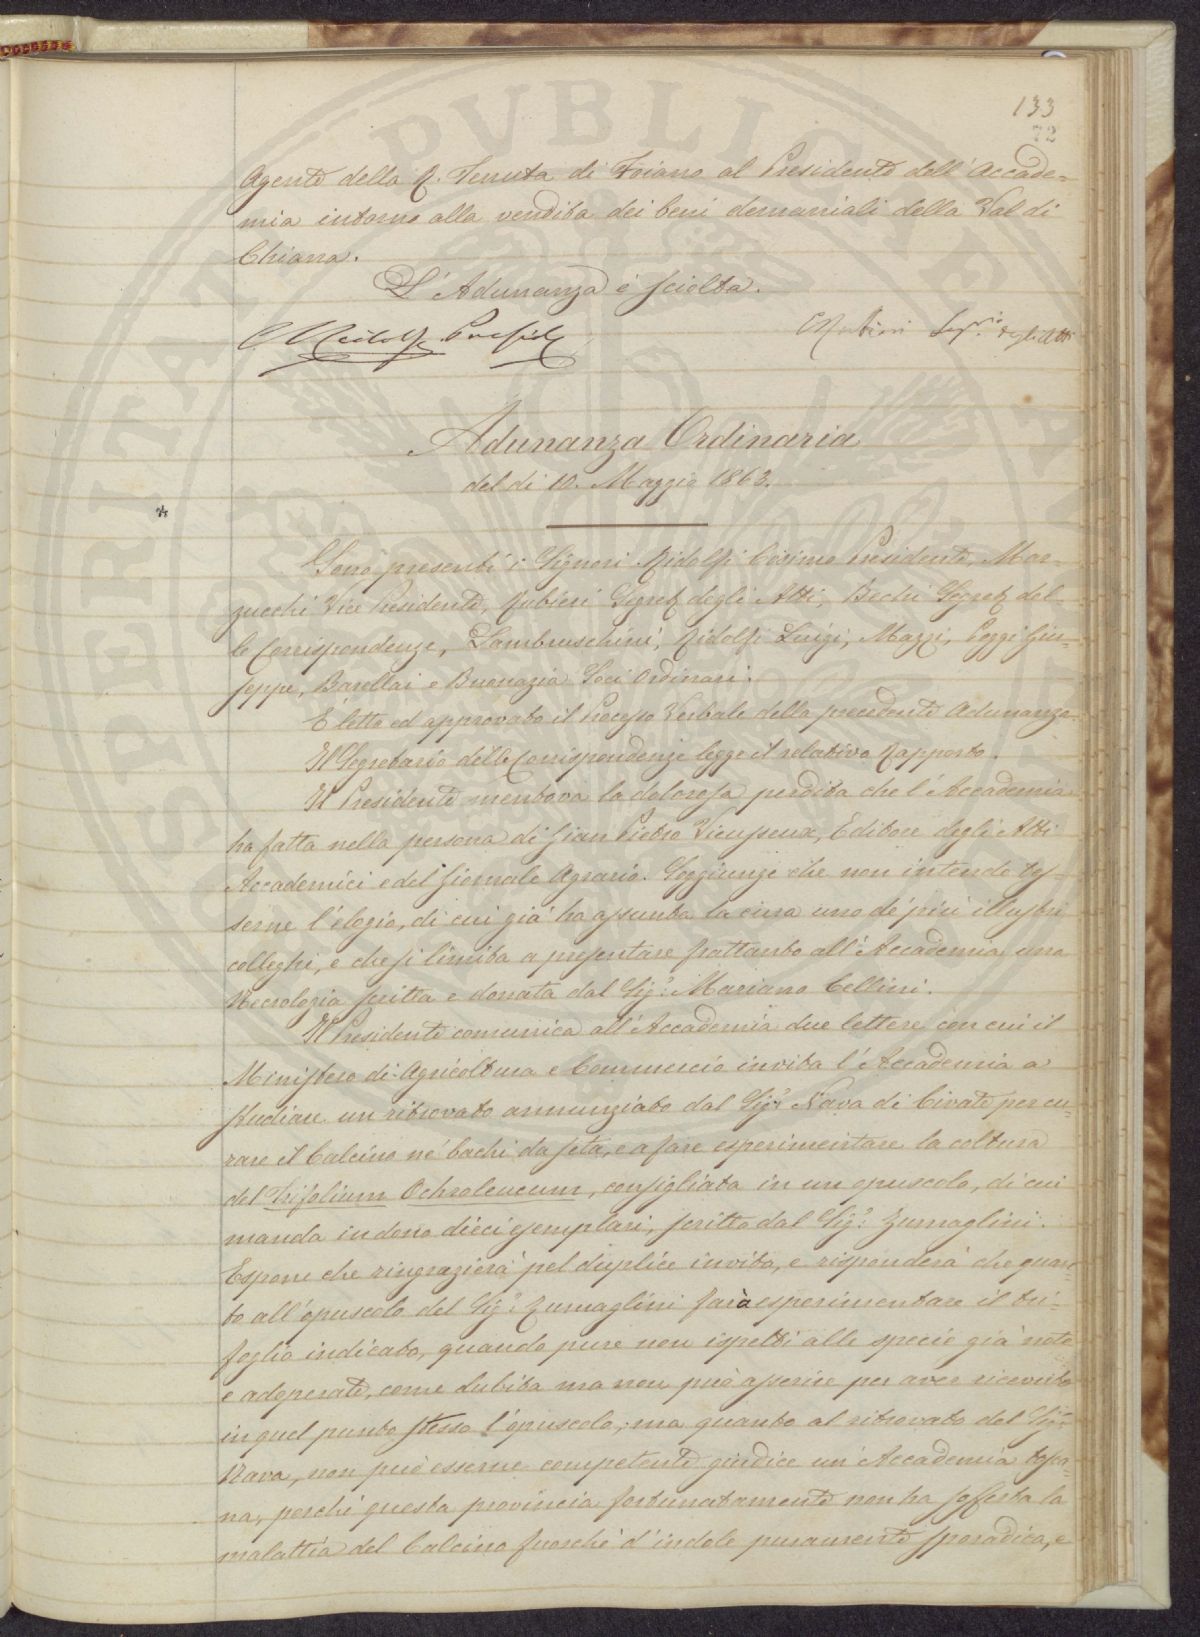 133
72
Agente della R. Tenuta di Foiano al Presidente dell'Accade=
mia intorno alla vendita dei beni demaniali della Val di
Chiana.
L'Adunanza è sciolta.
C. Ridolfi Presid.
Rubieri Seg.rio degli Atti
Adunanza Ordinaria
del dì 10. Maggio 1863.
Sono presenti i Signori Ridolfi Cosimo Presidente, Mar-
zucchi Vice Presidente, Rubieri Segret. degli Atti, Bechi Segret. del-
le Corrispondenze, Lambruschini, Ridolfi Luigi, Mazzi, Poggi Giu-
seppe, Barellai e Buonazia Soci Ordinari.
È letto ed approvato il Processo Verbale della precedente Adunanza.
Il Segretario delle Corrispondenze legge il relativo Rapporto.
Il Presidente mentova la dolorosa perdita che l'Accademia
ha fatta nella persona di Gian Pietro Vieusseux, Editore degli Atti
Accademici e del Giornale Agrario. Soggiunge che non intende tes-
serne l'elogio, di cui già ha assunta la cura uno de' più illustri
colleghi, e che si limita a presentare frattanto all'Accademia una
Necrologia scritta e donata dal Sig.r Mariano Cellini.
Il Presidente comunica all'Accademia due lettere con cui il
Ministero di Agricoltura e Commercio invita l'Accademia a
studiare un ritrovato annunziato dal Sig.r Nava di Civate per cu-
rare il Calcino ne' bachi da seta, e a fare esperimentare la coltura
del Trifolium Ochroleucum, consigliata in un opuscolo, di cui
manda in dono dieci esemplari, scritto dal Sig.r Zumaglini.
Espone che ringrazierà pel duplice invito, e risponderà che quan-
to all'opuscolo del Sig.r Zumaglini farà esperimentare il tri-
foglio indicato, quando pure non ispetti alle specie già note
e adoperate, come dubita ma non può asserire per aver ricevuto
in quel punto stesso l'opuscolo; ma quanto al ritrovato del Sig.r
Nava, non può esserne competente giudice un'Accademia tosca-
na, perchè questa provincia fortunatamente non ha sofferta la
malattia del Calcino fuorchè d'indole puramente sporadica, e